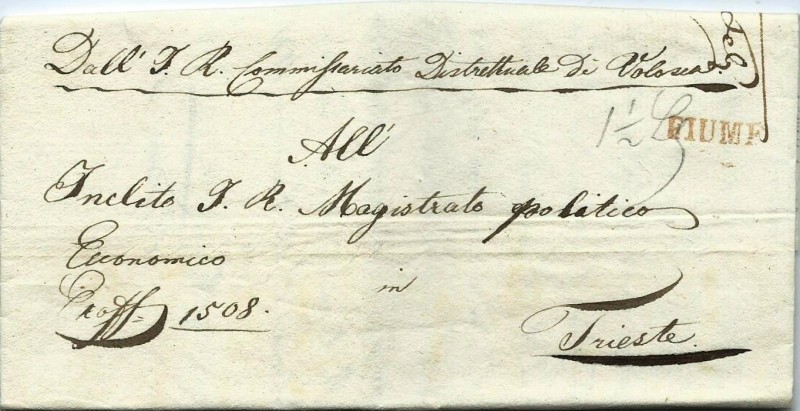 Dall' I. R. Commissariato Distrettuale Di Volosca.
1 1/2
FIUME
All'
Inclito I. R. Magistrato politico
Economico
in
Exoff. 1508.
Trieste.